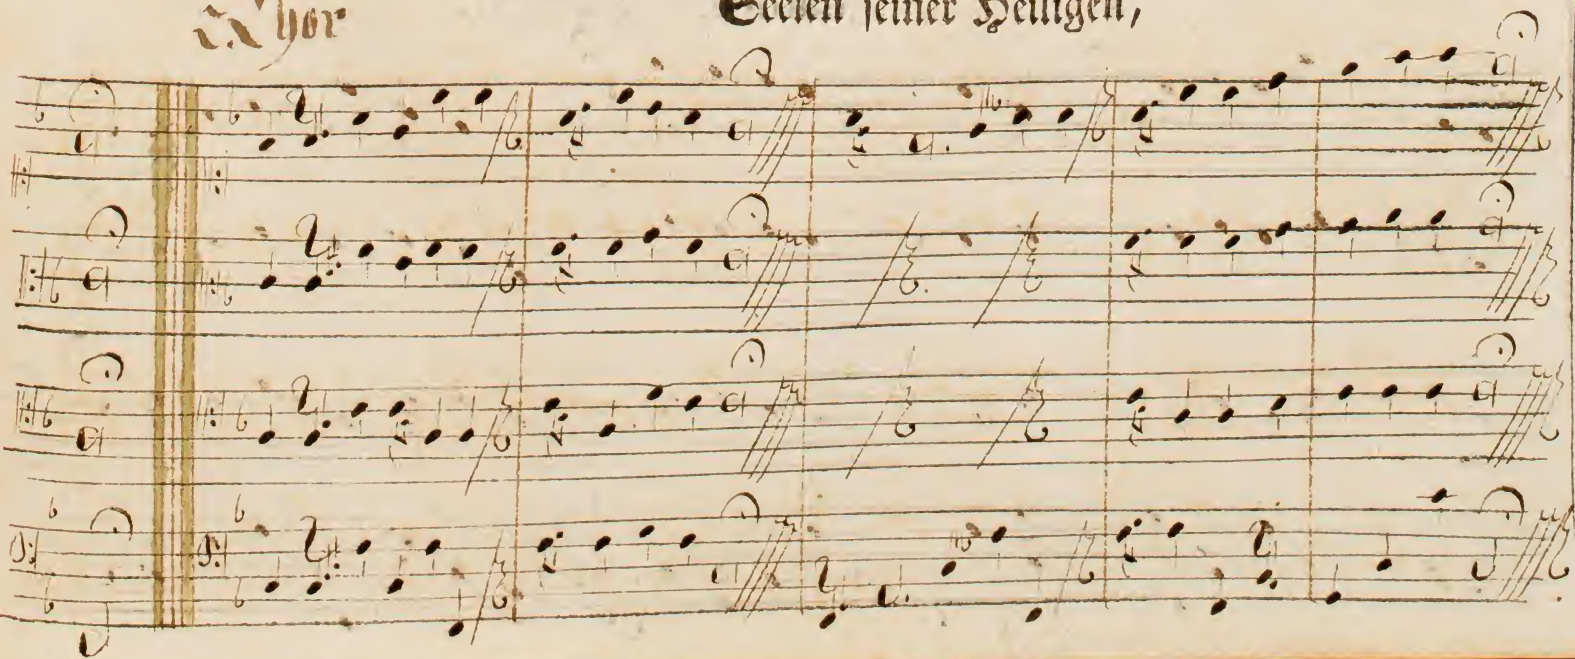 Chor
Seelen seiner Heiligen,